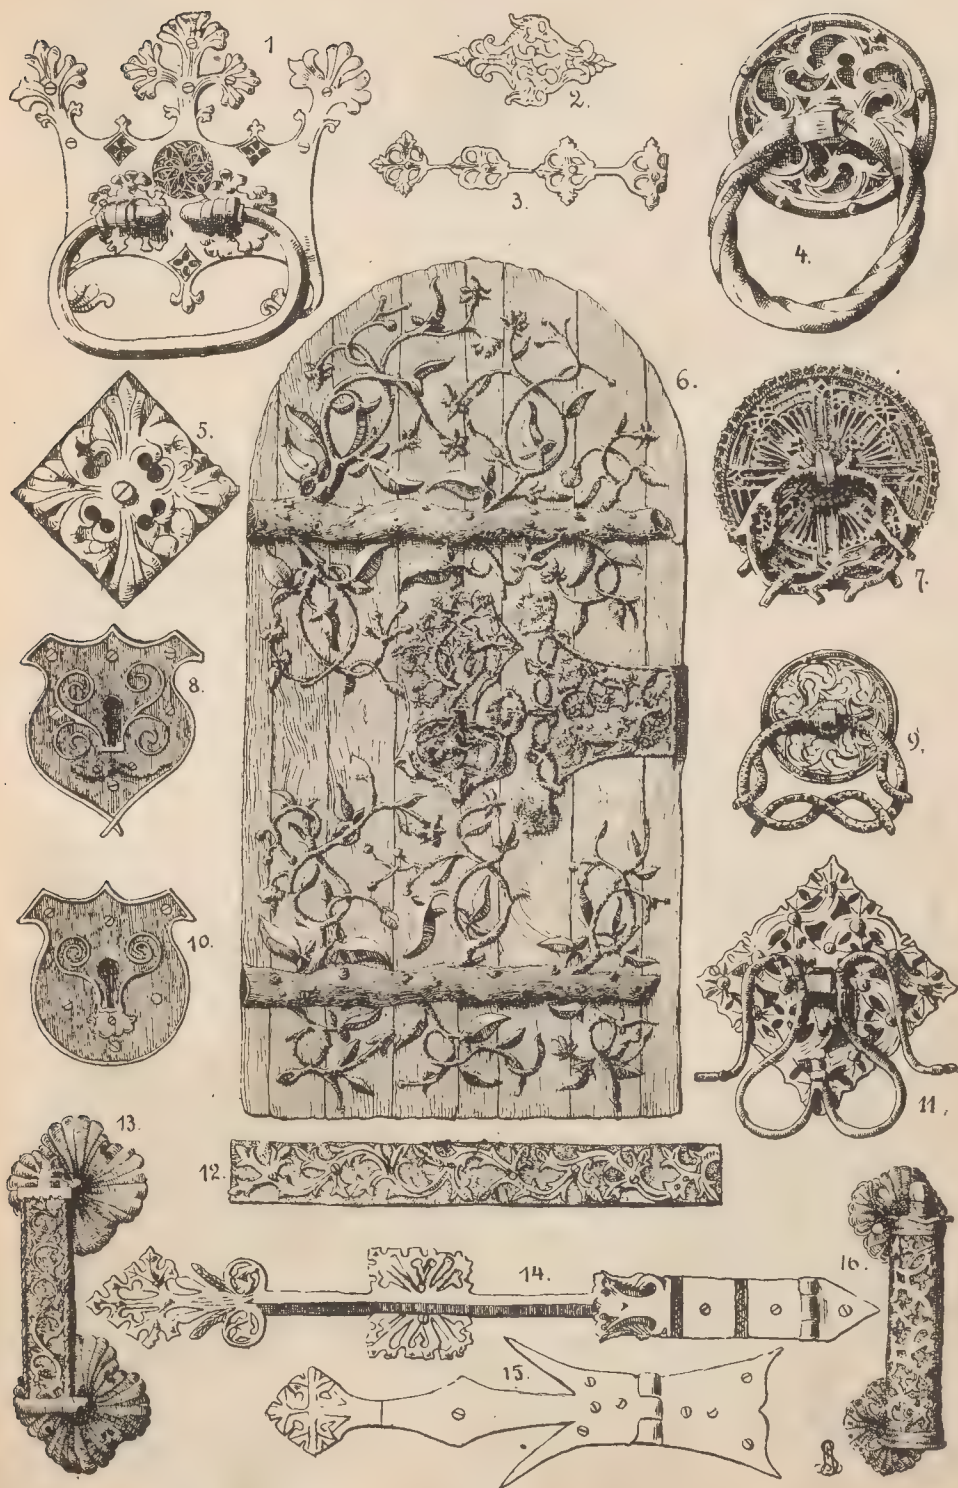 1
2.
3.
4.
5.
6.
7.
8.
9.
10.
11.
12.
13.
14.
15.
16.